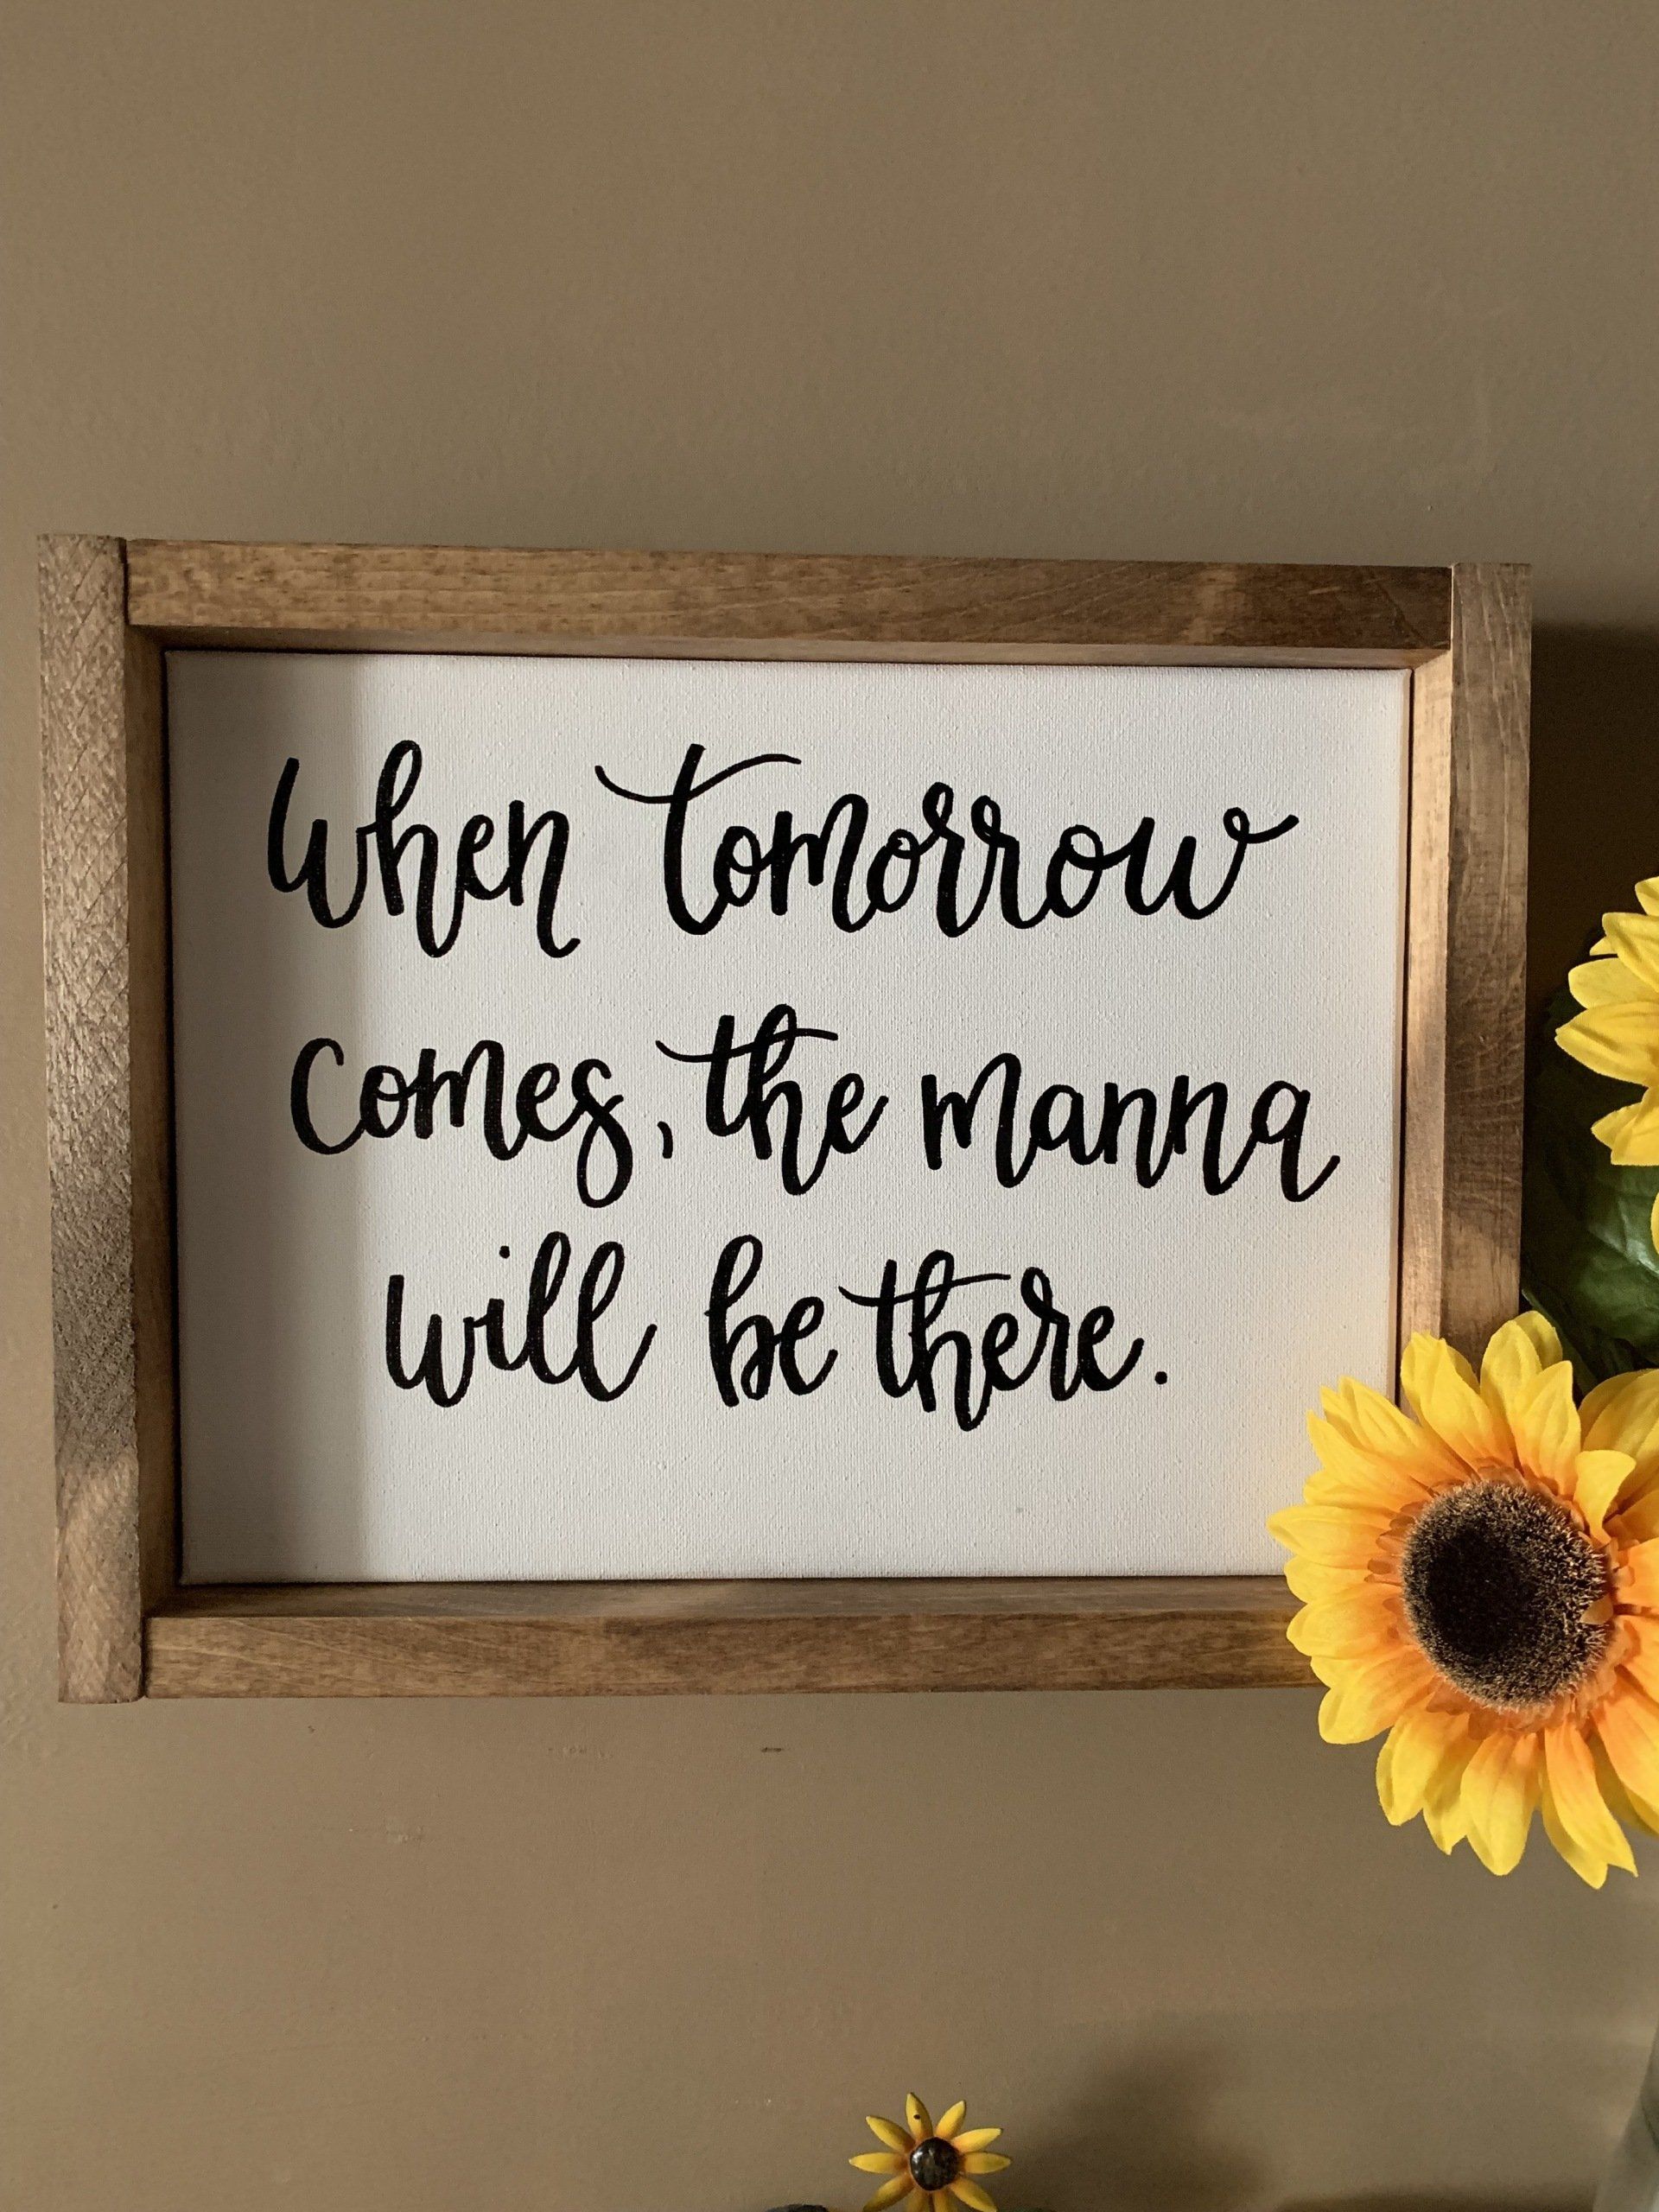 When tomorrow
comes, the manna
will be there.